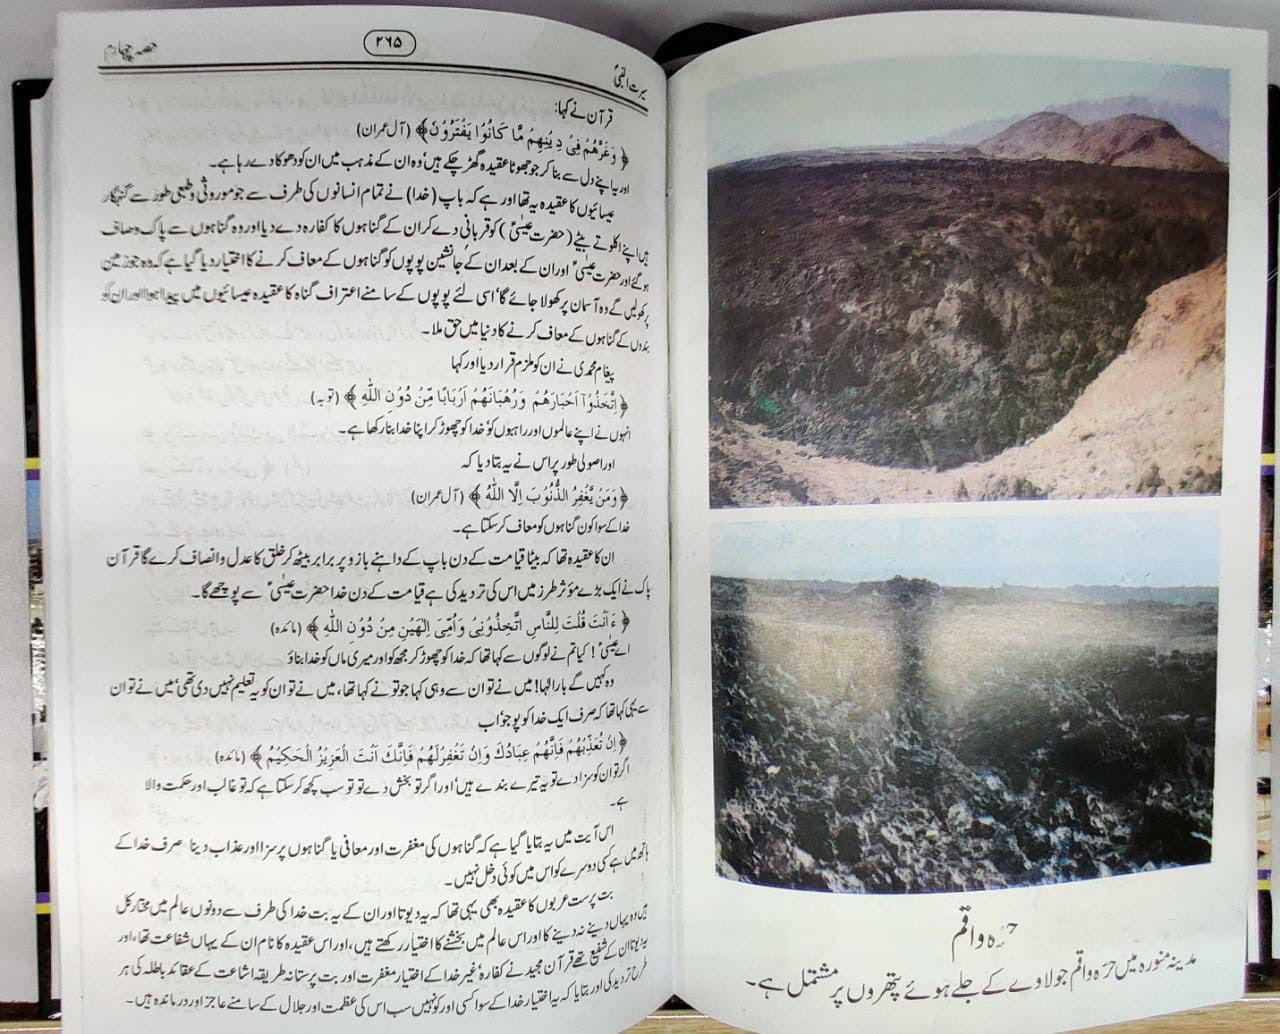 سیرت النبیؐ
۲۶۵
حصہ چہارم
قرآن نے کہا:
﴿ وَغَرَّهُمْ فِیْ دِیْنِهِمْ مَّا كَانُوْا یَفْتَرُوْنَ ﴾ (آل عمران)
اور یہ اپنے دل سے بنا کر جو جھوٹا عقیدہ گھڑ چکے ہیں' وہ ان کے مذہب میں ان کو دھوکا دے رہا ہے۔
عیسائیوں کا عقیدہ یہ تھا اور ہے کہ باپ (خدا) نے تمام انسانوں کی طرف سے جو موروثی وطبعی طور سے گنہگار
ہیں اپنے اکلوتے بیٹے (حضرت عیسیٰؑ) کو قربانی دے کر ان کے گناہوں کا کفارہ دے دیا اور وہ گناہوں سے پاک وصاف
ہو گئے اور حضرت عیسیٰؑ اور ان کے بعد ان کے جانشین پوپوں کو گناہوں کے معاف کرنے کا اختیار دیا گیا ہے کہ وہ جو زمین
پر کھولیں گے وہ آسمان پر کھولا جائے گا' اسی لئے پوپوں کے سامنے اعتراف گناہ کا عقیدہ عیسائیوں میں پیدا ہوا اور ان کو
بندوں کے گناہوں کے معاف کرنے کا دنیا میں حق ملا۔
پیغام محمدی نے ان کو ملزم قرار دیا اور کہا
﴿ اِتَّخَذُوْۤا اَحْبَارَهُمْ وَرُهْبَانَهُمْ اَرْبَابًا مِّنْ دُوْنِ اللّٰهِ ﴾ (توبہ)
انہوں نے اپنے عالموں اور راہبوں کو خدا کو چھوڑ کر اپنا خدا بنا رکھا ہے۔
اور اصولی طور پر اس نے یہ بتا دیا کہ
﴿ وَمَنْ یَّغْفِرُ الذُّنُوْبَ اِلَّا اللّٰهُ ﴾ (آل عمران)
خدا کے سوا کون گناہوں کو معاف کر سکتا ہے۔
ان کا عقیدہ تھا کہ بیٹا قیامت کے دن باپ کے داہنے بازو پر برابر بیٹھ کر خلق کا عدل وانصاف کرے گا قرآن
پاک نے ایک بڑے مؤثر طرز میں اس کی تردید کی ہے قیامت کے دن خدا حضرت عیسیٰؑ سے پوچھے گا۔
﴿ ءَاَنْتَ قُلْتَ لِلنَّاسِ اتَّخِذُوْنِیْ وَاُمِّیَ اِلٰهَیْنِ مِنْ دُوْنِ اللّٰهِ ﴾ (مائدہ)
اے عیسیٰؑ! کیا تم نے لوگوں سے کہا تھا کہ خدا کو چھوڑ کر مجھ کو اور میری ماں کو خدا بناؤ
وہ کہیں گے بارالٰہا! میں نے تو ان سے وہی کہا جو تو نے کہا تھا، میں نے تو ان کو یہ تعلیم نہیں دی تھی' میں نے تو ان
سے یہی کہا تھا کہ صرف ایک خدا کو پوجو اب
﴿ اِنْ تُعَذِّبْهُمْ فَاِنَّهُمْ عِبَادُكَ وَاِنْ تَغْفِرْلَهُمْ فَاِنَّكَ اَنْتَ الْعَزِیْزُ الْحَكِیْمُ ﴾ (مائدہ)
اگر تو ان کو سزا دے تو یہ تیرے بندے ہیں' اور اگر تو بخش دے تو تو سب کچھ کر سکتا ہے کہ تو غالب اور حکمت والا
ہے۔
اس آیت میں یہ بتایا گیا ہے کہ گناہوں کی مغفرت اور معافی یا گناہوں پر سزا اور عذاب دینا صرف خدا کے
ہاتھ میں ہے کسی دوسرے کو اس میں کوئی دخل نہیں۔
بت پرست عربوں کا عقیدہ بھی یہی تھا کہ یہ دیوتا اور ان کے یہ بت خدا کی طرف سے دونوں عالم میں مختار کل
ہیں وہ یہاں دینے نہ دینے کا اور اس عالم میں بخشنے کا اختیار رکھتے ہیں، اور اس عقیدہ کا نام ان کے یہاں شفاعت تھا، اور
یہ دیوتا ان کے شفیع تھے قرآن مجید نے کفارہ' غیر خدا کے اختیار مغفرت اور بت پرستانہ طریقہ اشاعت کے عقائد باطلہ کی ہر
طرح تردید کی اور بتایا کہ یہ اختیار خدا کے سوا کسی اور کو نہیں سب اس کی عظمت اور جلال کے سامنے عاجز اور درماندہ ہیں۔
حرّہ واقم
مدینہ منورہ میں حرّہ واقم جو لاوے کے جلے ہوئے پتھروں پر مشتمل ہے۔